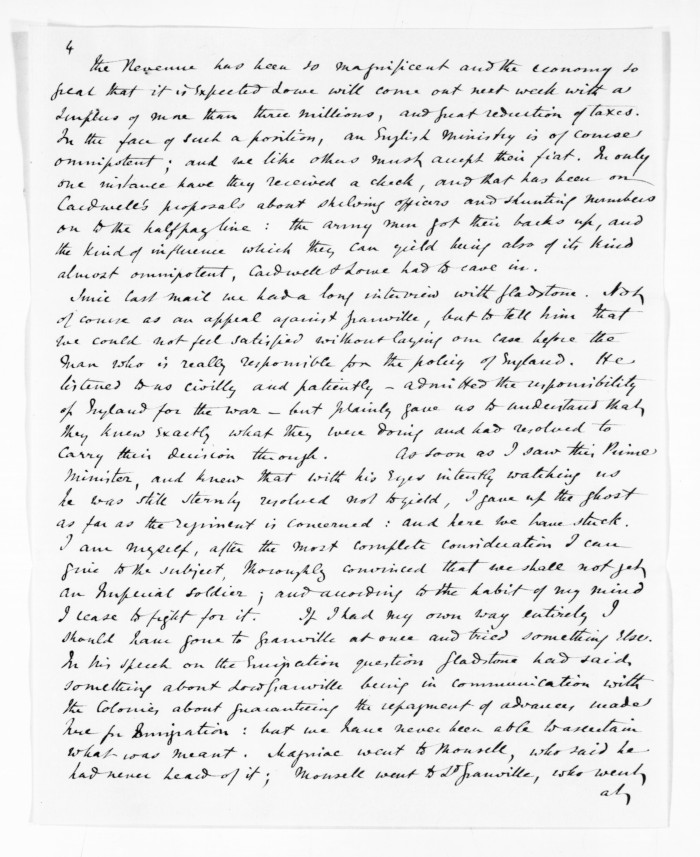 4
The Revenue has been so magnificent and the economy so
great that it is expected Lowe will come out next week with a
Surplus of more than three millions, and great reduction of taxes.
In the face of such a position, an English Ministry is of course
omnipotent; and we like others must accept their fiat. In only
one instance have they received a check, and that has been on
Cardwell's proposals about shelving officers and shunting numbers
on to the halfpay line: the army men got their backs up, and
the kind of influence which they can yield being also of its kind
almost omnipotent, Cardwell & Lowe had to cave in.
Since last mail we had a long interview with Gladstone. Not
of course as an appeal against Granville, but to tell him that
we could not feel satisfied without laying our case before the
man who is really responsible for the policy of England. He
listened to us civilly and patiently – admitted the responsibility
of England for the war – but plainly gave us to understand that
they knew exactly what they were doing and had resolved to
carry their decision through. As soon as I saw this Prime
Minister, and knew that with his Eyes intently watching us
he was still sternly resolved not to yield, I gave up the ghost
as far as the regiment is concerned: and here we have stuck.
I am myself, after the most complete consideration I can
give to the subject, thoroughly convinced that we shall not get
an Imperial soldier; and according to the habit of my mind
I cease to fight for it. If I had my own way entirely I
should have gone to Granville at once and tried something else.
In his speech on the Emigration question Gladstone had said
something about Lord Granville being in communication with
the Colonies about guaranteeing the repayment of advances made
here for Emigration: but we have never been able to ascertain
what was meant. Magniac went to Monsell, who said he
had never heard of it; Monsell went to Ld Granville, who went
at